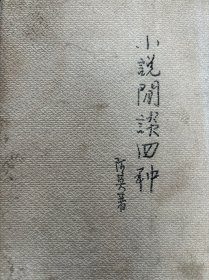 小說閒談四种
阿英著